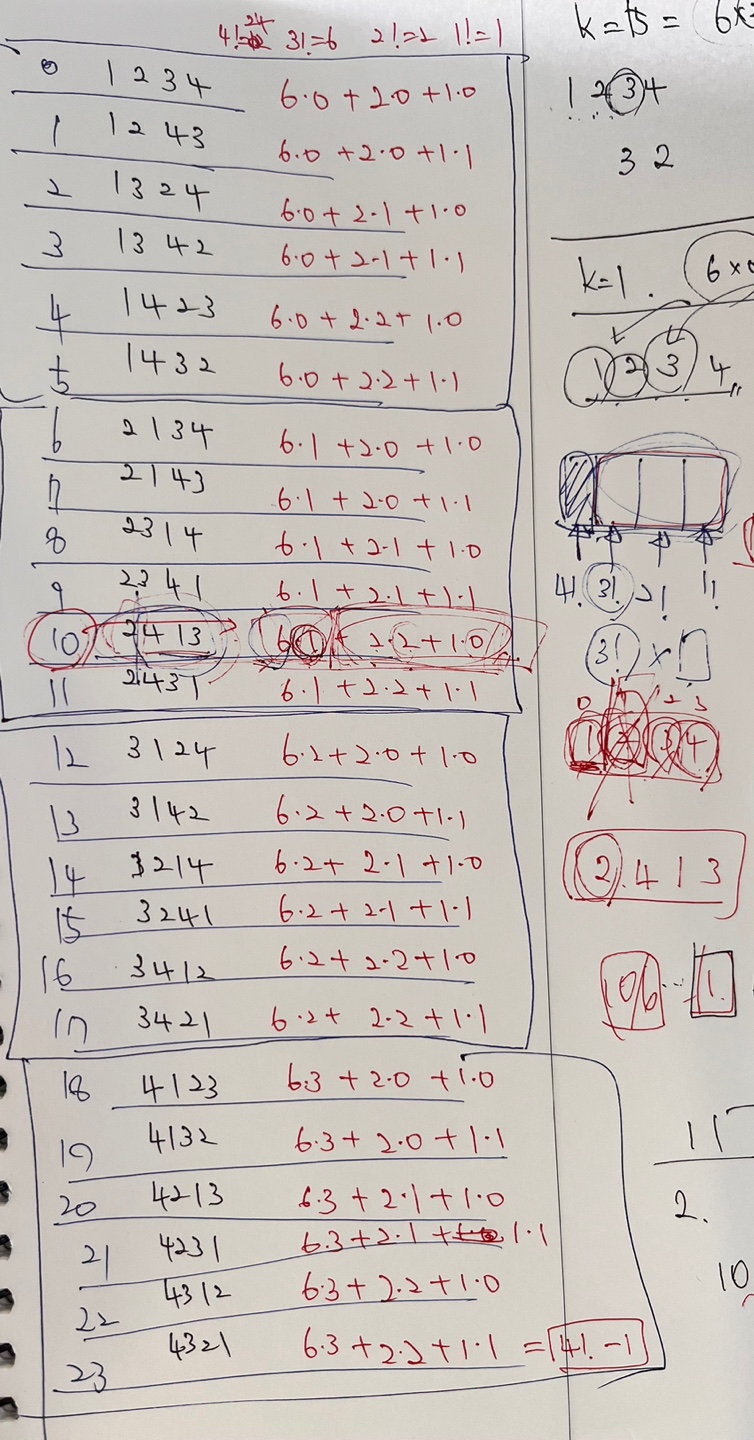 4!=24 3!=6 2!=2 1!=1
0 1234 6·0+2·0+1·0
1 1243 6·0+2·0+1·1
2 1324 6·0+2·1+1·0
3 1342 6·0+2·1+1·1
4 1423 6·0+2·2+1·0
5 1432 6·0+2·2+1·1
6 2134 6·1+2·0+1·0
7 2143 6·1+2·0+1·1
8 2314 6·1+2·1+1·0
9 2341 6·1+2·1+1·1
10 2413 6·1+2·2+1·0
11 2431 6·1+2·2+1·1
12 3124 6·2+2·0+1·0
13 3142 6·2+2·0+1·1
14 3214 6·2+2·1+1·0
15 3241 6·2+2·1+1·1
16 3412 6·2+2·2+1·0
17 3421 6·2+2·2+1·1
18 4123 6·3+2·0+1·0
19 4132 6·3+2·0+1·1
20 4213 6·3+2·1+1·0
21 4231 6·3+2·1+1·1
22 4312 6·3+2·2+1·0
23 4321 6·3+2·2+1·1 = 4!-1
k=15=6×
1234
32
k=1. 6×
1 2 3 4
4! 3! 2! 1!
3! ×
0 1 2 3
1 2 3 4
2.413
10/6 ... 1.
11
2.
10